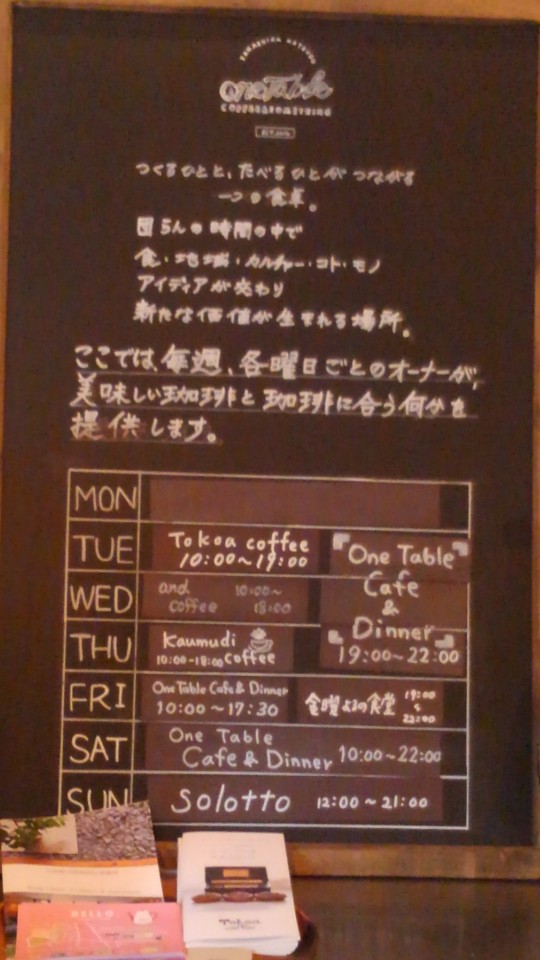 One Table
COFFEE&SOMETHING
つくるひとと、たべるひとが つながる
一つの食卓。
団らんの時間の中で
食・地域・カルチャー・コト・モノ
アイディアが交わり
新たな価値が生まれる場所。
ここでは、毎週、各曜日ごとのオーナーが、
美味しい珈琲と珈琲に合う何かを
提供します。
MON
TUE Tokoa coffee
10:00~19:00
One Table
Cafe
&
Dinner
19:00~22:00
WED and 10:00~
coffee 18:00
THU Kaumudi
10:00-18:00 coffee
FRI One Table Cafe & Dinner
10:00~17:30
金曜よるの食堂 19:00
~
22:00
SAT One Table
Cafe & Dinner 10:00~22:00
SUN Solotto 12:00~21:00
HELLO
Tokoa